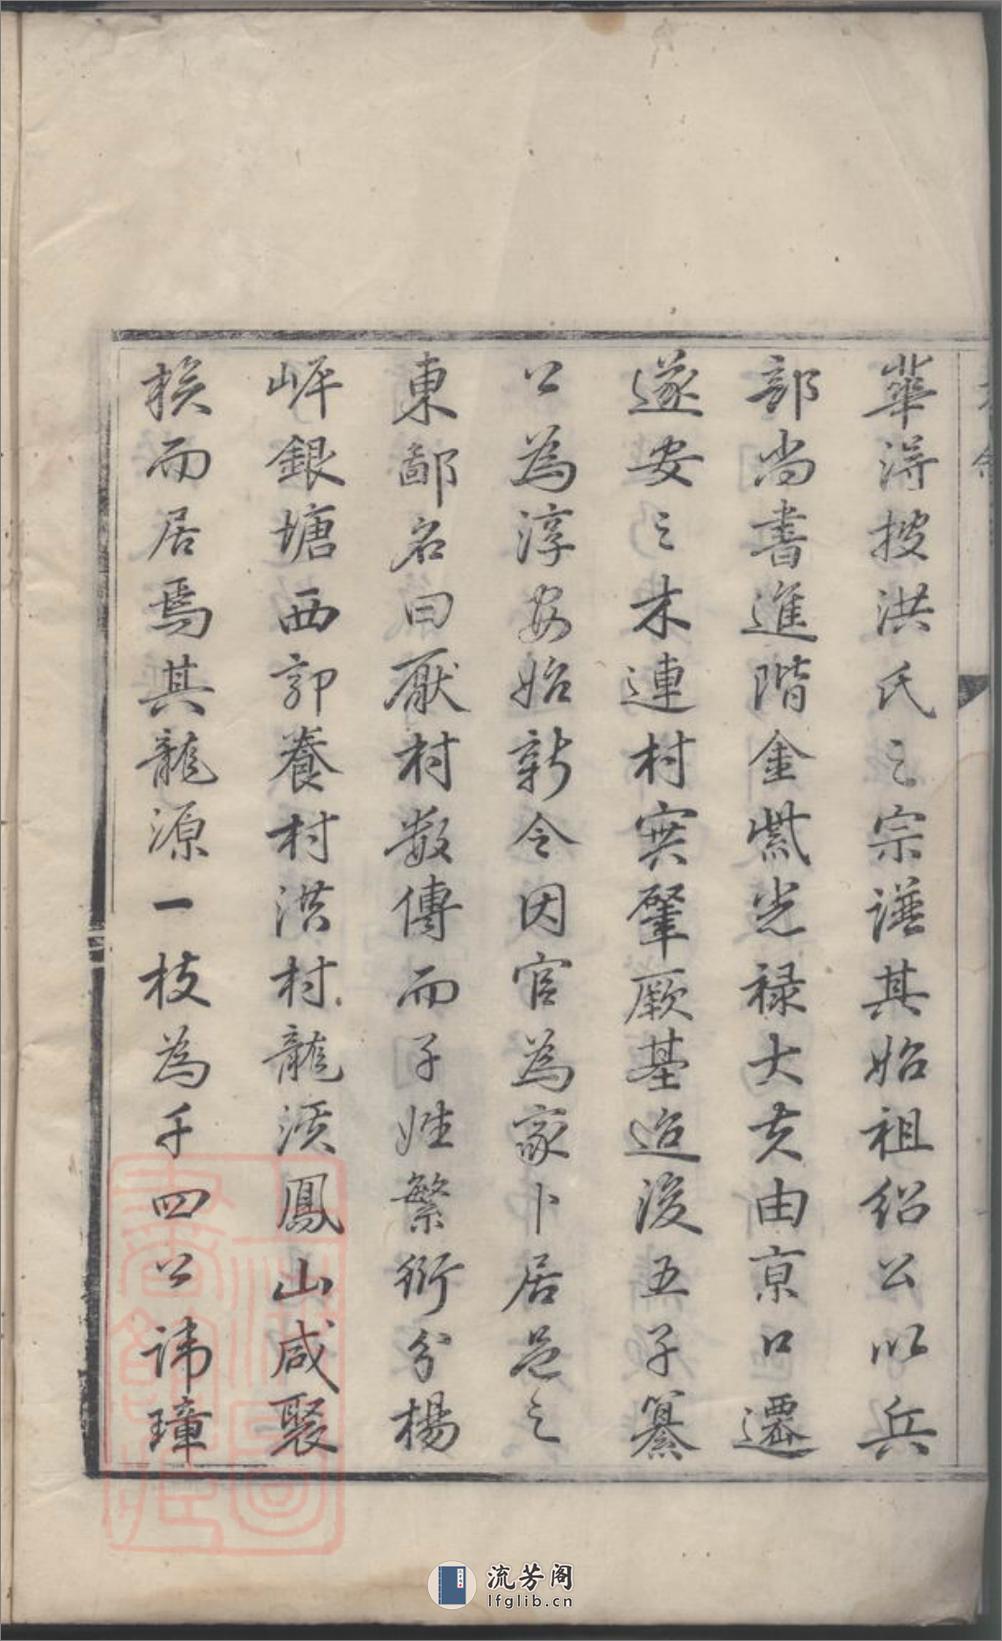 華淂披洪氏之宗譜其始祖紹公以兵
部尚書進階金紫光禄大夫由京口遷
遂安之木連村寔肇厥基迨後五子纂
公為淳安始新令因官為家卜居邑之
東鄙名曰厭村数傳而子姓繁衍分楊
岸銀塘西郭養村洪村龍須鳳山咸聚
族而居焉其龍源一枝為千四公諱璋
流芳阁
lfglib.cn